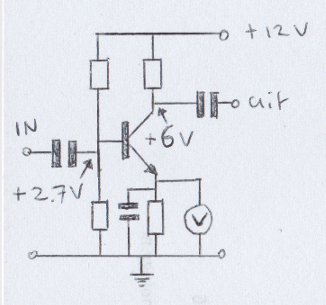 +12V
uit
IN
+6V
+2.7V
V